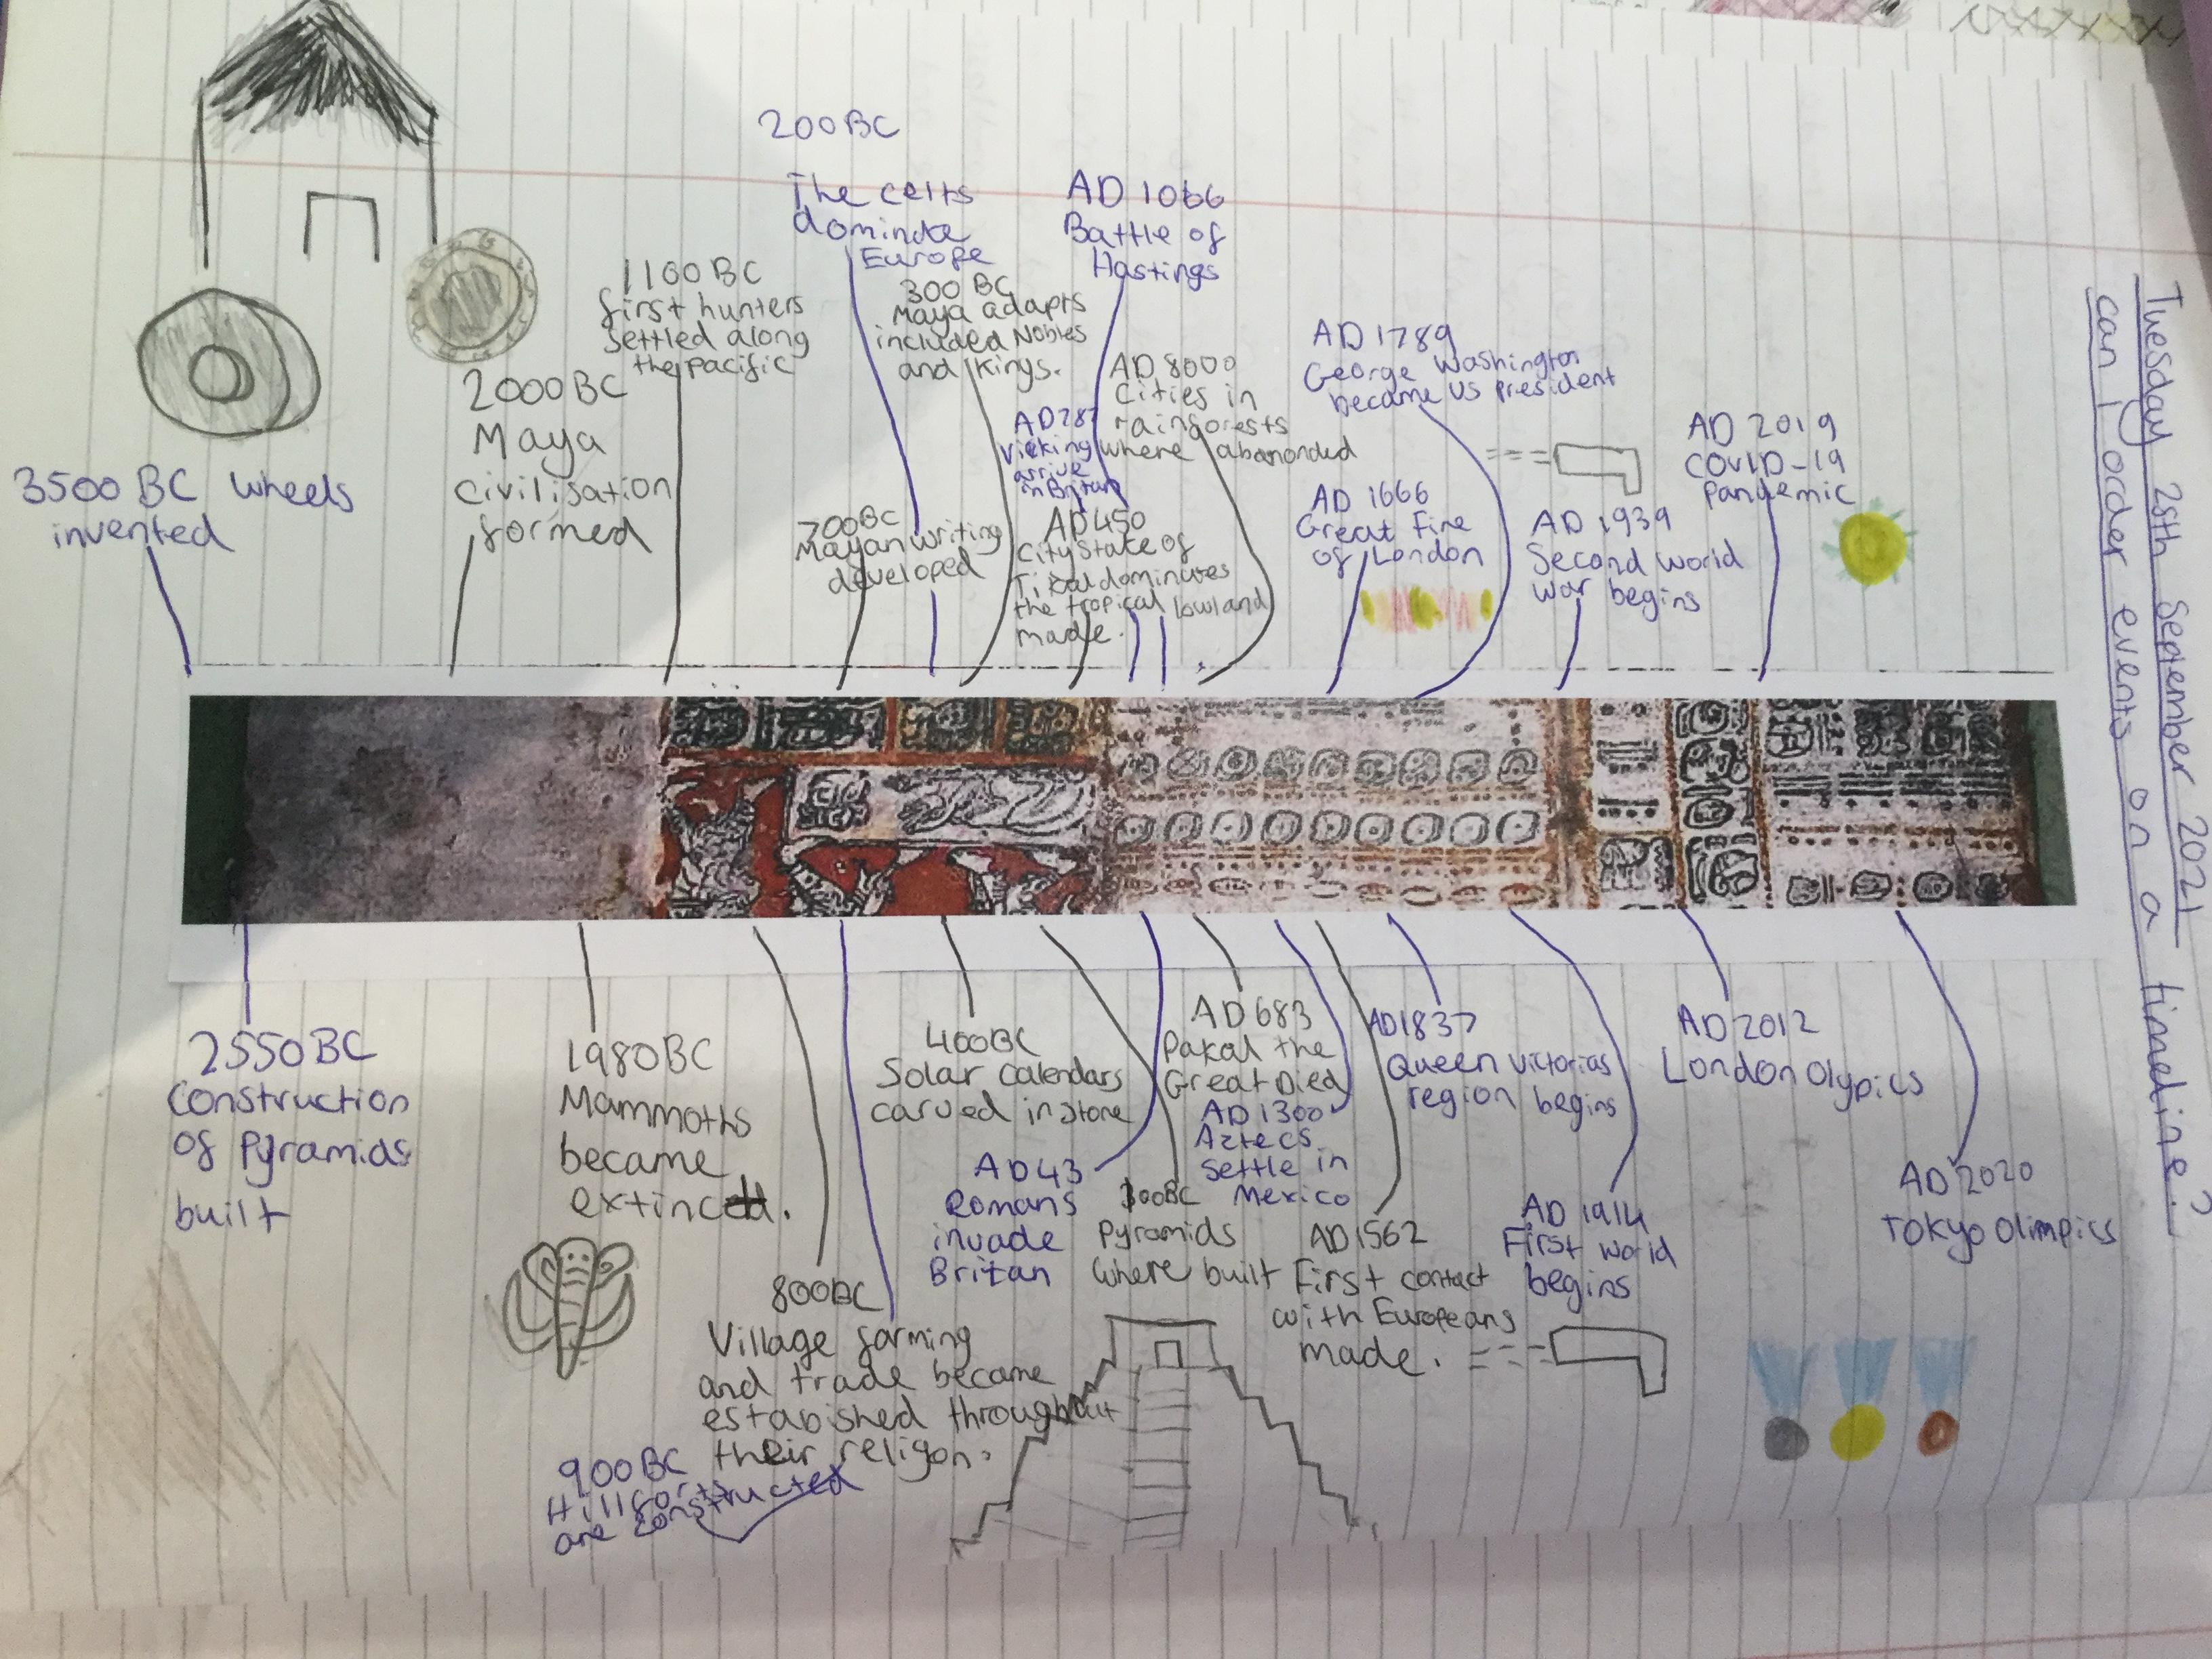 Tuesday 28th September 2021
can I order events on a timeline?
3500 BC wheels
invented
2000BC
Maya
civilisation
formed
1100BC
first hunters
settled along
the pacific
200BC
The celts
dominate
Europe
700BC
Mayan writing
developed
300 BC
Maya adapts
included Nobles
and Kings.
AD 1066
Battle of
Hastings
AD787
Vicking
arrive
in Britan
AD450
City state of
Tikal dominates
the tropical lowland
made.
AD 8000
Cities in
rainforests
where abanonded
AD 1789
George Washington
became US president
AD 1666
Great Fire
of London
AD 1939
Second world
war begins
AD 2019
COVID-19
pandemic
2550BC
Construction
of Pyramids
built
1980BC
Mammoths
became
extinct.
800BC
Village farming
and trade became
estabished throughout
their religon.
900BC
Hillforts
are constructed
400BC
Solar calendars
carved in stone
AD43
Romans
invade
Britan
300BC
Pyramids
where built
AD683
Pakal the
Great Died
AD1300
Aztecs
settle in
Mexico
AD1562
First contact
with Europeans
made.
AD1837
Queen victorias
region begins
AD 1914
First world
begins
AD2012
London Olypics
AD 2020
Tokyo Olimpics